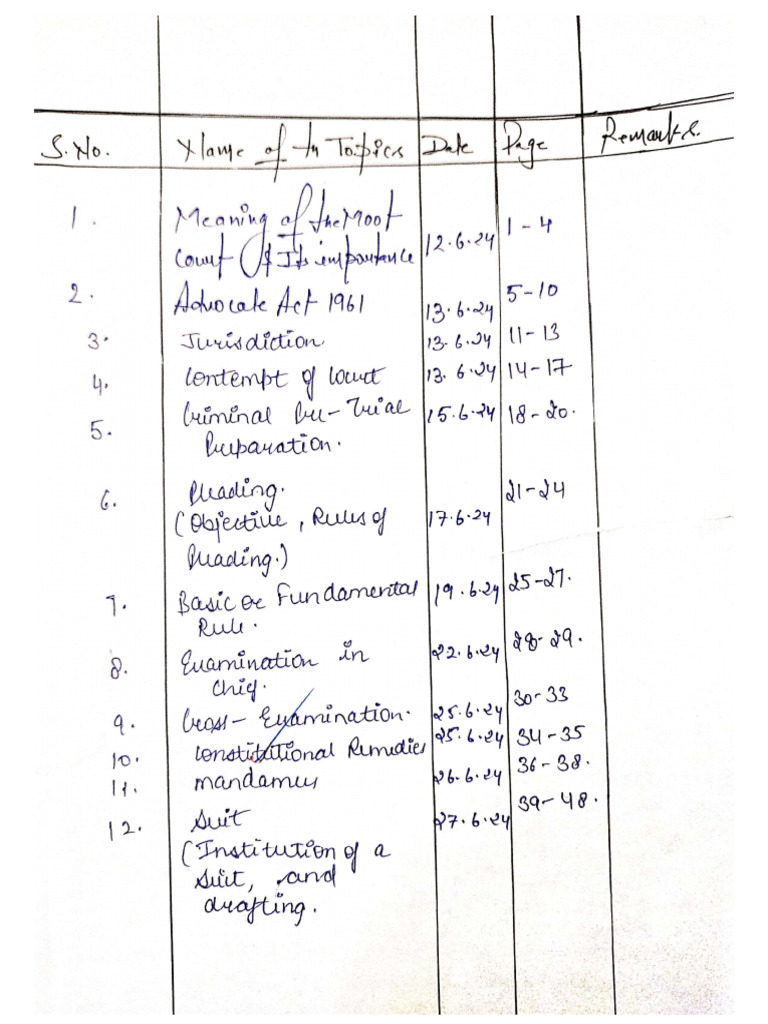 S.No. Name of the Topics Date Page Remarks.
1. Meaning of the Moot
Court & Its importance 12.6.24 1-4
2. Advocate Act 1961 13.6.24 5-10
3. Jurisdiction 13.6.24 11-13
4. Contempt of Court 13.6.24 14-17
5. Criminal Pre-Trial 15.6.24 18-20.
Preparation.
6. Pleading. 21-24
(Objective, Rules of 17.6.24
Pleading.)
7. Basic or Fundamental 19.6.24 25-27.
Rule.
8. Examination in 22.6.24 28-29.
Chief.
9. Cross-Examination. 25.6.24 30-33
10. Constitutional Remedies 25.6.24 34-35
11. mandamus 26.6.24 36-38.
12. Suit 27.6.24 39-48.
(Institution of a
Suit, and
drafting.